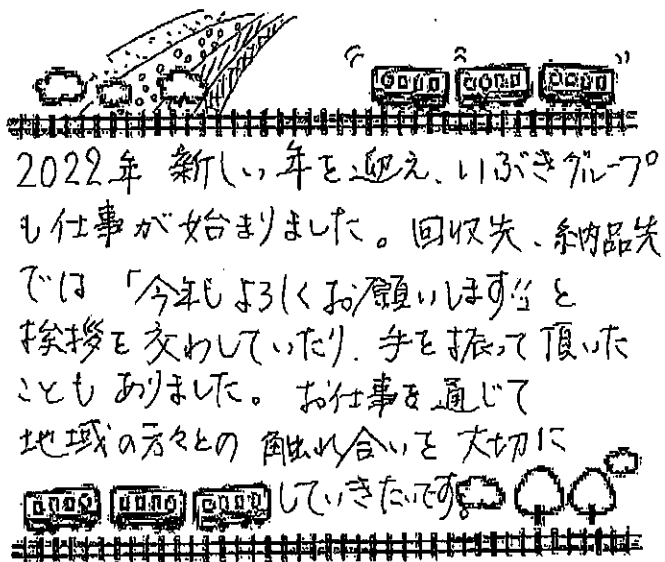 2022年 新しい年を迎え、いぶきグループ
も仕事が始まりました。回収先、納品先
では「今年もよろしくお願いします」と
挨拶を交わしていたり、手を振って頂いた
こともありました。お仕事を通じて
地域の方々との触れ合いを大切に
していきたいです。